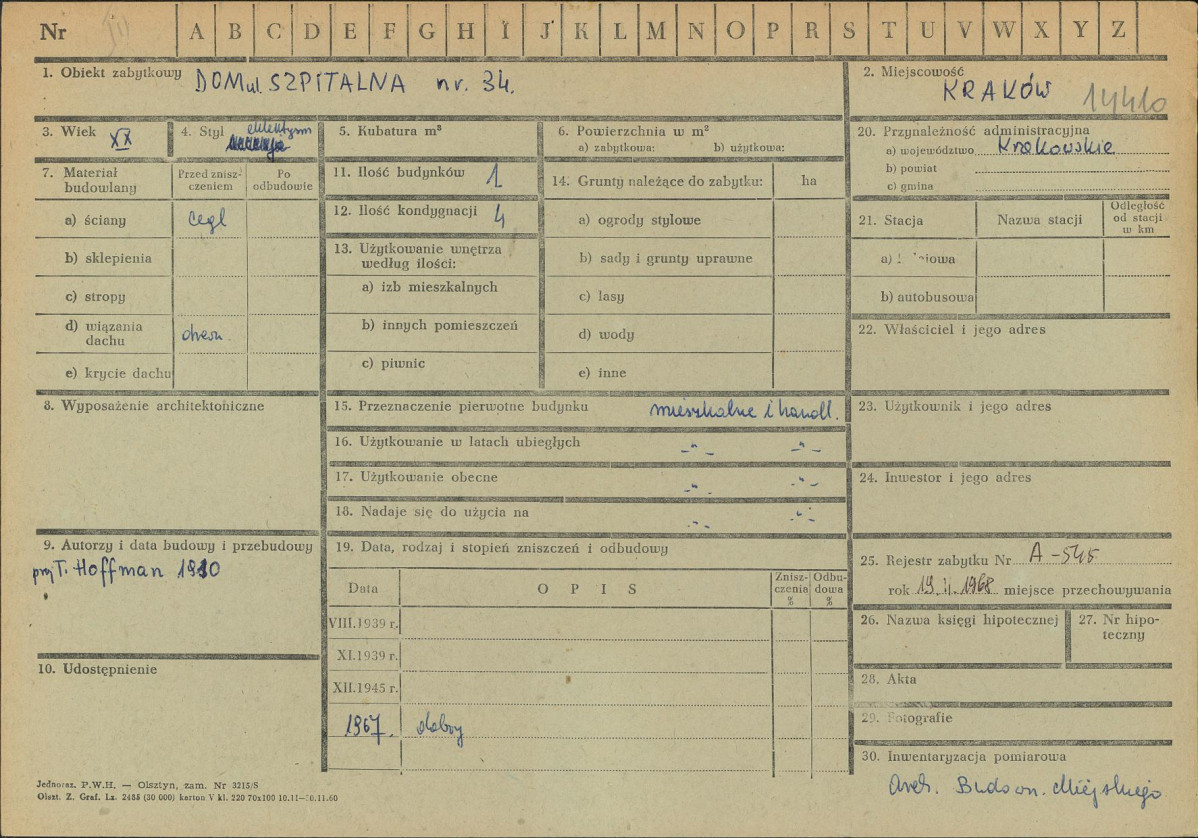 Nr A B C D E F G H I J K L M N O P R S T U V W X Y Z
1. Obiekt zabytkowy DOM ul. SZPITALNA nr. 34.
2. Miejscowość
KRAKÓW 14410
3. Wiek XX
4. Styl eklektyzm
5. Kubatura m³
6. Powierzchnia w m²
a) zabytkowa: b) użytkowa:
7. Materiał budowlany
Przed znisz-
czeniem
Po
odbudowie
a) ściany cegł
b) sklepienia
c) stropy
d) wiązania
dachu drewn.
e) krycie dachu
8. Wyposażenie architektoniczne
9. Autorzy i data budowy i przebudowy
proj T. Hoffman 1910
10. Udostępnienie
11. Ilość budynków 1
12. Ilość kondygnacji 4
13. Użytkowanie wnętrza
według ilości:
a) izb mieszkalnych
b) innych pomieszczeń
c) piwnic
14. Grunty należące do zabytku: ha
a) ogrody stylowe
b) sady i grunty uprawne
c) lasy
d) wody
e) inne
15. Przeznaczenie pierwotne budynku mieszkalne i handl.
16. Użytkowanie w latach ubiegłych -"- -"-
17. Użytkowanie obecne -"- -"-
18. Nadaje się do użycia na -"- -"-
19. Data, rodzaj i stopień zniszczeń i odbudowy
Data OPIS
Znisz-
czenia
%
Odbu-
dowa
%
VIII.1939 r.
XI.1939 r.
XII.1945 r.
1967. dobry
20. Przynależność administracyjna
a) województwo Krakowskie
b) powiat
c) gmina
21. Stacja Nazwa stacji
Odległość
od stacji
w km
b) autobusowa
22. Właściciel i jego adres
23. Użytkownik i jego adres
24. Inwestor i jego adres
25. Rejestr zabytku Nr A-545
rok 19.II.1968 miejsce przechowywania
26. Nazwa księgi hipotecznej
27. Nr hipo-
teczny
28. Akta
29. Fotografie
30. Inwentaryzacja pomiarowa
Arch. Budown. Miejskiego
Jednoraz. P.W.H. — Olsztyn, zam. Nr 3215/S
Olszt. Z. Graf. Lz. 2485 (30 000) karton V kl. 220 70x100 10.11—30.11.60